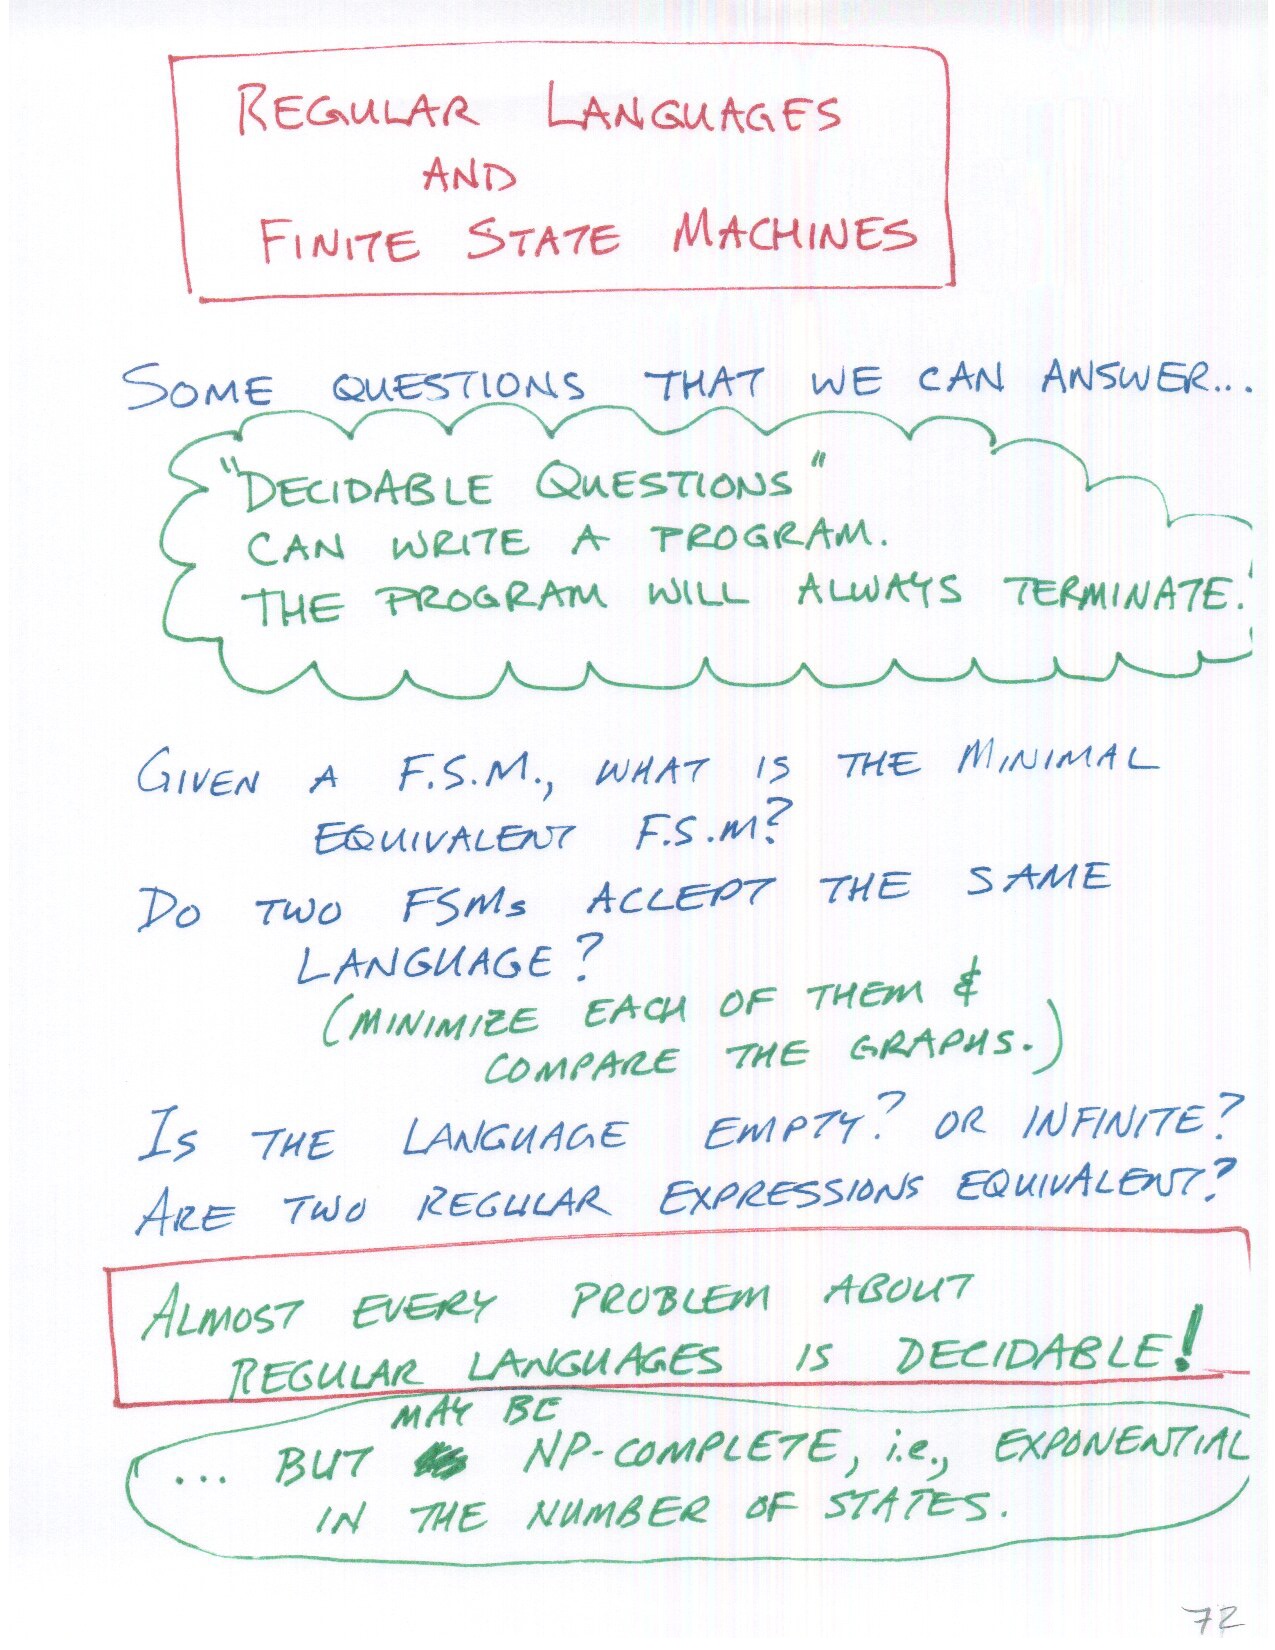 REGULAR LANGUAGES
AND
FINITE STATE MACHINES
SOME QUESTIONS THAT WE CAN ANSWER...
"DECIDABLE QUESTIONS"
CAN WRITE A PROGRAM.
THE PROGRAM WILL ALWAYS TERMINATE.
GIVEN A F.S.M., WHAT IS THE MINIMAL
EQUIVALENT F.S.M?
DO TWO FSMs ACCEPT THE SAME
LANGUAGE?
(MINIMIZE EACH OF THEM &
COMPARE THE GRAPHS.)
IS THE LANGUAGE EMPTY? OR INFINITE?
ARE TWO REGULAR EXPRESSIONS EQUIVALENT?
ALMOST EVERY PROBLEM ABOUT
REGULAR LANGUAGES IS DECIDABLE!
MAY BE
... BUT NP-COMPLETE, i.e., EXPONENTIAL
IN THE NUMBER OF STATES.
72